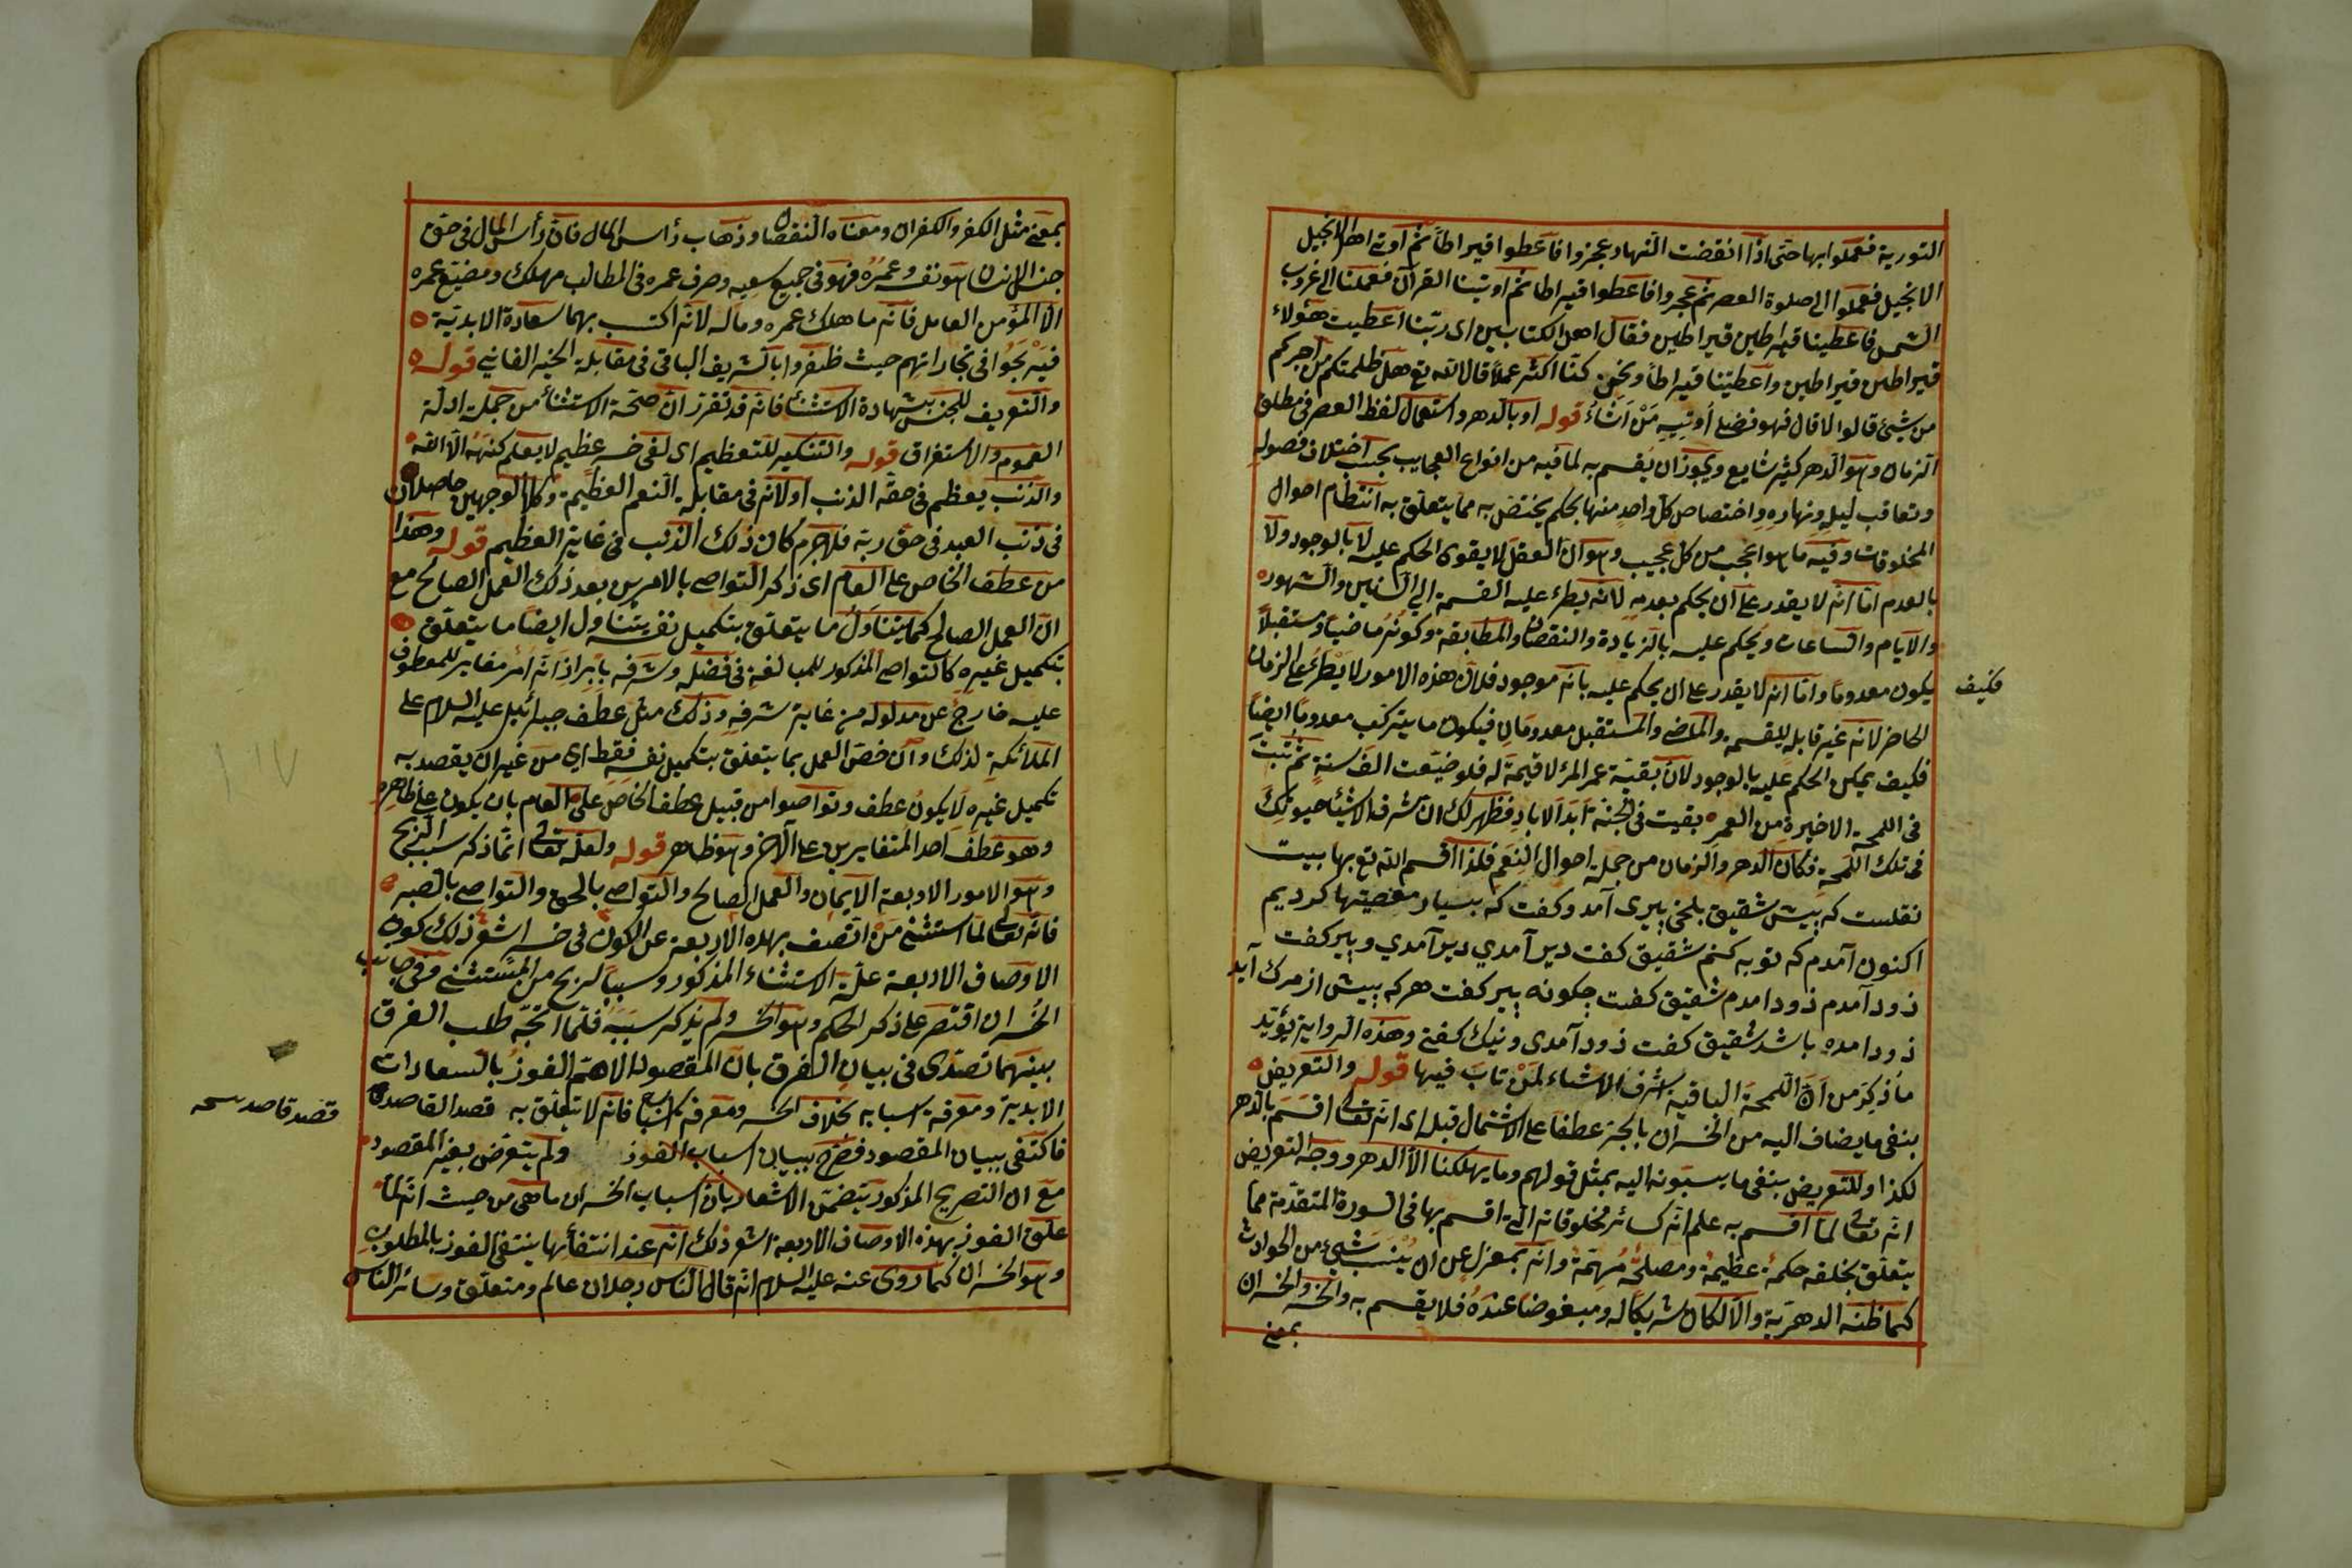 التورية فعملوا بها حتى اذا انقضت النهار عجزوا فاعطوا قيراطا ثم اوتى اهل الانجيل
الانجيل فعملوا الى صلوة العصر ثم عجزوا فاعطوا قيراطا ثم اوتينا القرآن فعملنا الى غروب
الشمس فاعطينا قيراطين قيراطين فقال اهل الكتابين اى ربنا اعطيت هؤلاء
قيراطين قيراطين واعطيتنا قيراطا ونحن كنا اكثر عملا قال الله تع هل ظلمتكم من اجركم
من شيئ قالوا لا قال فهو فضلى اوتيه من اشاء قوله او بالدهر واستعمال لفظ العصر فى مطلق
الزمان وهو الدهر كثير شايع ويجوز ان يقسم به لما فيه من انواع العجايب بحسب اختلاف فصوله
وتعاقب ليله ونهاره واختصاص كل واحد منها بحكم يختص به مما يتعلق به انتظام احوال
المخلوقات وفيه ما هو اعجب من كل عجيب وهو ان العقل لا يقوى الحكم عليه لا بالوجود ولا
بالعدم اما انه لا يقدر على ان يحكم بعدمه لانه يطرء عليه القسمة الى السنين والشهور
والايام والساعات ويحكم عليه بالزيادة والنقصان والمطابقة وكونه ماضيا ومستقبلا
فكيف
يكون معدوما واما انه لا يقدر على ان يحكم عليه بانه موجود فلان هذه الامور لا يطرء على الزمان
الحاضر لانه غير قابل للقسمة والماضى والمستقبل معدومان فيكون ما يتركب معدوما ايضا
فكيف يمكن الحكم عليه بالوجود لان بقية عمر المرء لا قيمة له فلو ضيعت الف سنة ثم تبت
فى اللمحة الاخيرة من العمر بقيت فى الجنة ابد الاباد فظهر لك ان اشرف الاشياء حيوتك
فى تلك اللمحة فكان الدهر والزمان من جملة احوال النعم فلذا اقسم الله تع بها بيت
نقلست كه پيش شقيق بلخى پيرى آمد وكفت كه بسيار معصيتها كرديم
اكنون آمدم كه توبه كنم شقيق كفت دير آمدي دير آمدي وپير كفت
زود آمدم زود امدم شقيق كفت چكونه پير كفت هر كه پيش از مرك آيد
زود امده باشد شقيق كفت زود آمدى ونيك كفتى وهذه الرواية يؤيد
ما ذكر من ان اللمحة الباقية اشرف الاشياء لمن تاب فيها قوله والتعريض
بنفى ما يضاف اليه من الخسران بالجر عطفا على الاشتمال قبله اى انه تعالى اقسم بالدهر
لكذا وللتعريض بنفى ما يسبونه اليه بمثل قولهم وما يهلكنا الا الدهر ووجه التعريض
انه تعالى لما اقسم به علم انه كسائر مخلوقاته التى اقسم بها فى السورة المتقدمة مما
يتعلق بخلقه حكمة عظيمة ومصلحة مهمة وانه بمعزل عن ان ينسب شيئ من الحوادث
كما ظنه الدهرية والا لكان شريكا له ومبغوضا عنده فلا يقسم به والخسر والخسران
بمعنى
بمعنى مثل الكفر والكفران ومعناه النقصان وذهاب رأس المال فان رأس المال فى حق
جنس الانسان هو نفسه وعمره فهو فى جميع سعيه وصرف عمره فى المطالب مهلك ومضيع عمره
الا المؤمن العامل فانه ما هلك عمره وماله لانه اكتسب بهما سعادة الابدية
فيربحوا فى تجاراتهم حيث ظفروا بالشريف الباقى فى مقابلة الخير الفانى قوله
والتعريف للجنس بشهادة الاستثناء فانه قد تقرر ان صحة الاستثناء من جملة ادلة
العموم والاستغراق قوله والتنكير للتعظيم اى لفى خسر عظيم لا يعلم كنهه الا الله
والذنب يعظم فى حقه الذنب اولانه فى مقابلة النعم العظيمة وكلا الوجهين حاصلان
فى ذنب العبد فى حق ربه فلا جرم كان ذلك الذنب فى غاية العظيم قوله وهذا
من عطف الخاص على العام اى ذكر التواصى بالامرين بعد ذلك العمل الصالح مع
ان العمل الصالح كما يتناول ما يتعلق بتكميل نفسه يتناول ايضا ما يتعلق
بتكميل غيره كالتواصى المذكور للمبالغة فى فضله وشرفه بابراز انه امر مغاير للمعطوف
عليه خارج عن مدلوله من غاية شرفه وذلك مثل عطف جبرائيل عليه السلام على
الملائكة لذلك وان خص العمل بما يتعلق بتكميل نفسه فقط اى من غير ان يقصد به
تكميل غيره لا يكون عطف وتواصوا من قبيل عطف الخاص على العام بان يكون على ظاهره
وهو عطف احد المتغايرين على الآخر وهو ظاهر قوله ولعله تعالى انما ذكر سبب الربح
وهو الامور الاربعة الايمان والعمل الصالح والتواصى بالحق والتواصى بالصبر
فانه تعالى لما استثنى من اتصف بهذه الاربعة عن الكون فى خسر اشعر ذلك كون
الاوصاف الاربعة علة الاستثناء المذكور وسببا لربح من المستثنى وفى جانب
الخسران اقتصر على ذكر الحكم وهو الخسر ولم يذكر سببه فلما اتجه طلب الفرق
بينهما تصدى فى بيان الفرق بان المقصود الاهم الفوز بالسعادات
الابدية ومعرفة اسبابه بخلاف الخسر ومعرفة اسبابه فانه لا يتعلق به قصد القاصد
قصد قاصد نسخه
فاكتفى ببيان المقصود فصرح ببيان اسباب الفوز ولم يتعرض بغير المقصود
مع ان التصريح المذكور يتضمن الاشعار بان اسباب الخسران ما هى من حيث انه لما
علق الفوز بهذه الاوصاف الاربعة اشعر ذلك انه عند انتفائها ينتفى الفوز بالمطلوب
وهو الخسران كما روى عنه عليه السلام انه قال الناس رجلان عالم ومتعلق وسائر الناس